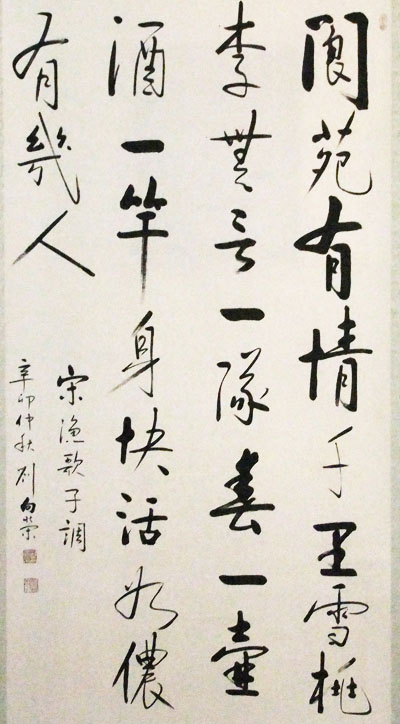 閬苑有情千里雪桃
李無言一隊春一壺
酒一竿身快活如儂
有幾人
宋漁歌子調
辛卯仲秋刘向榮